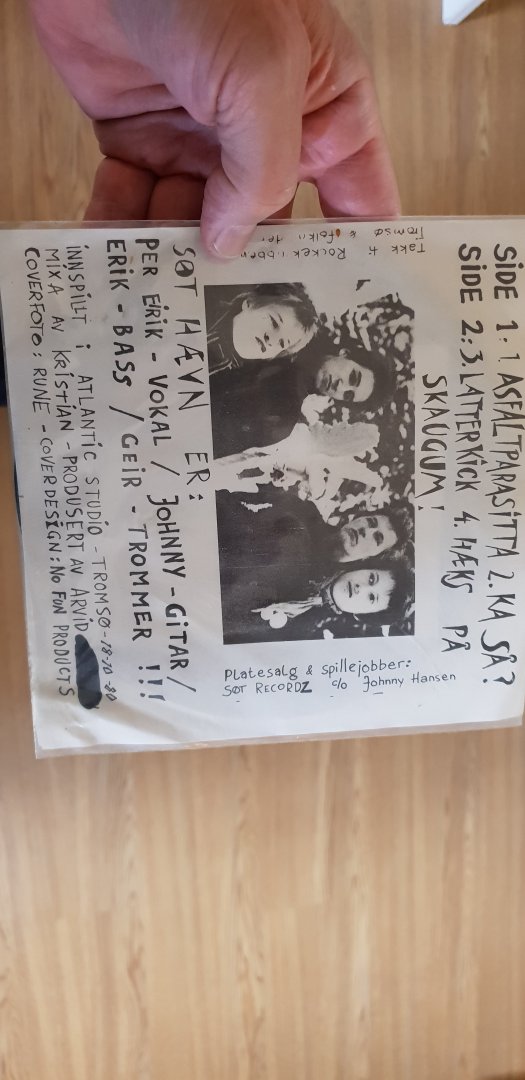 SIDE 1: 1. ASFALTPARASITTA 2. KA SÅ?
SIDE 2: 3. LATTERKICK 4. HÆKS PÅ
SKAUGUM!
Takk ti Rockeklubben
Tromsø & folkn der
Platesalg & Spillejobber:
SØT RECORDZ c/o Johnny Hansen
SØT HÆVN ER:
PER ERIK - VOKAL / JOHNNY - GITAR /
ERIK - BASS / GEIR - TROMMER !!!
INNSPILLT i ATLANTIC STUDIO - TROMSØ - 18-10-80
MIXA AV KRISTIAN - PRODUSERT AV ARVID
COVERFOTO: RUNE - COVERDESIGN: NO FUN PRODUCTS